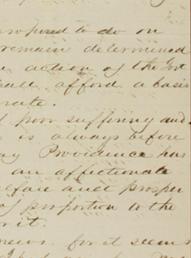 proposed to do on
remain determined
action of the Govt
shall afford a basis
rate.
poor suffering and
is always before
Providence has
an affectionate
welfare and prosper
of proportion to the
for it seems